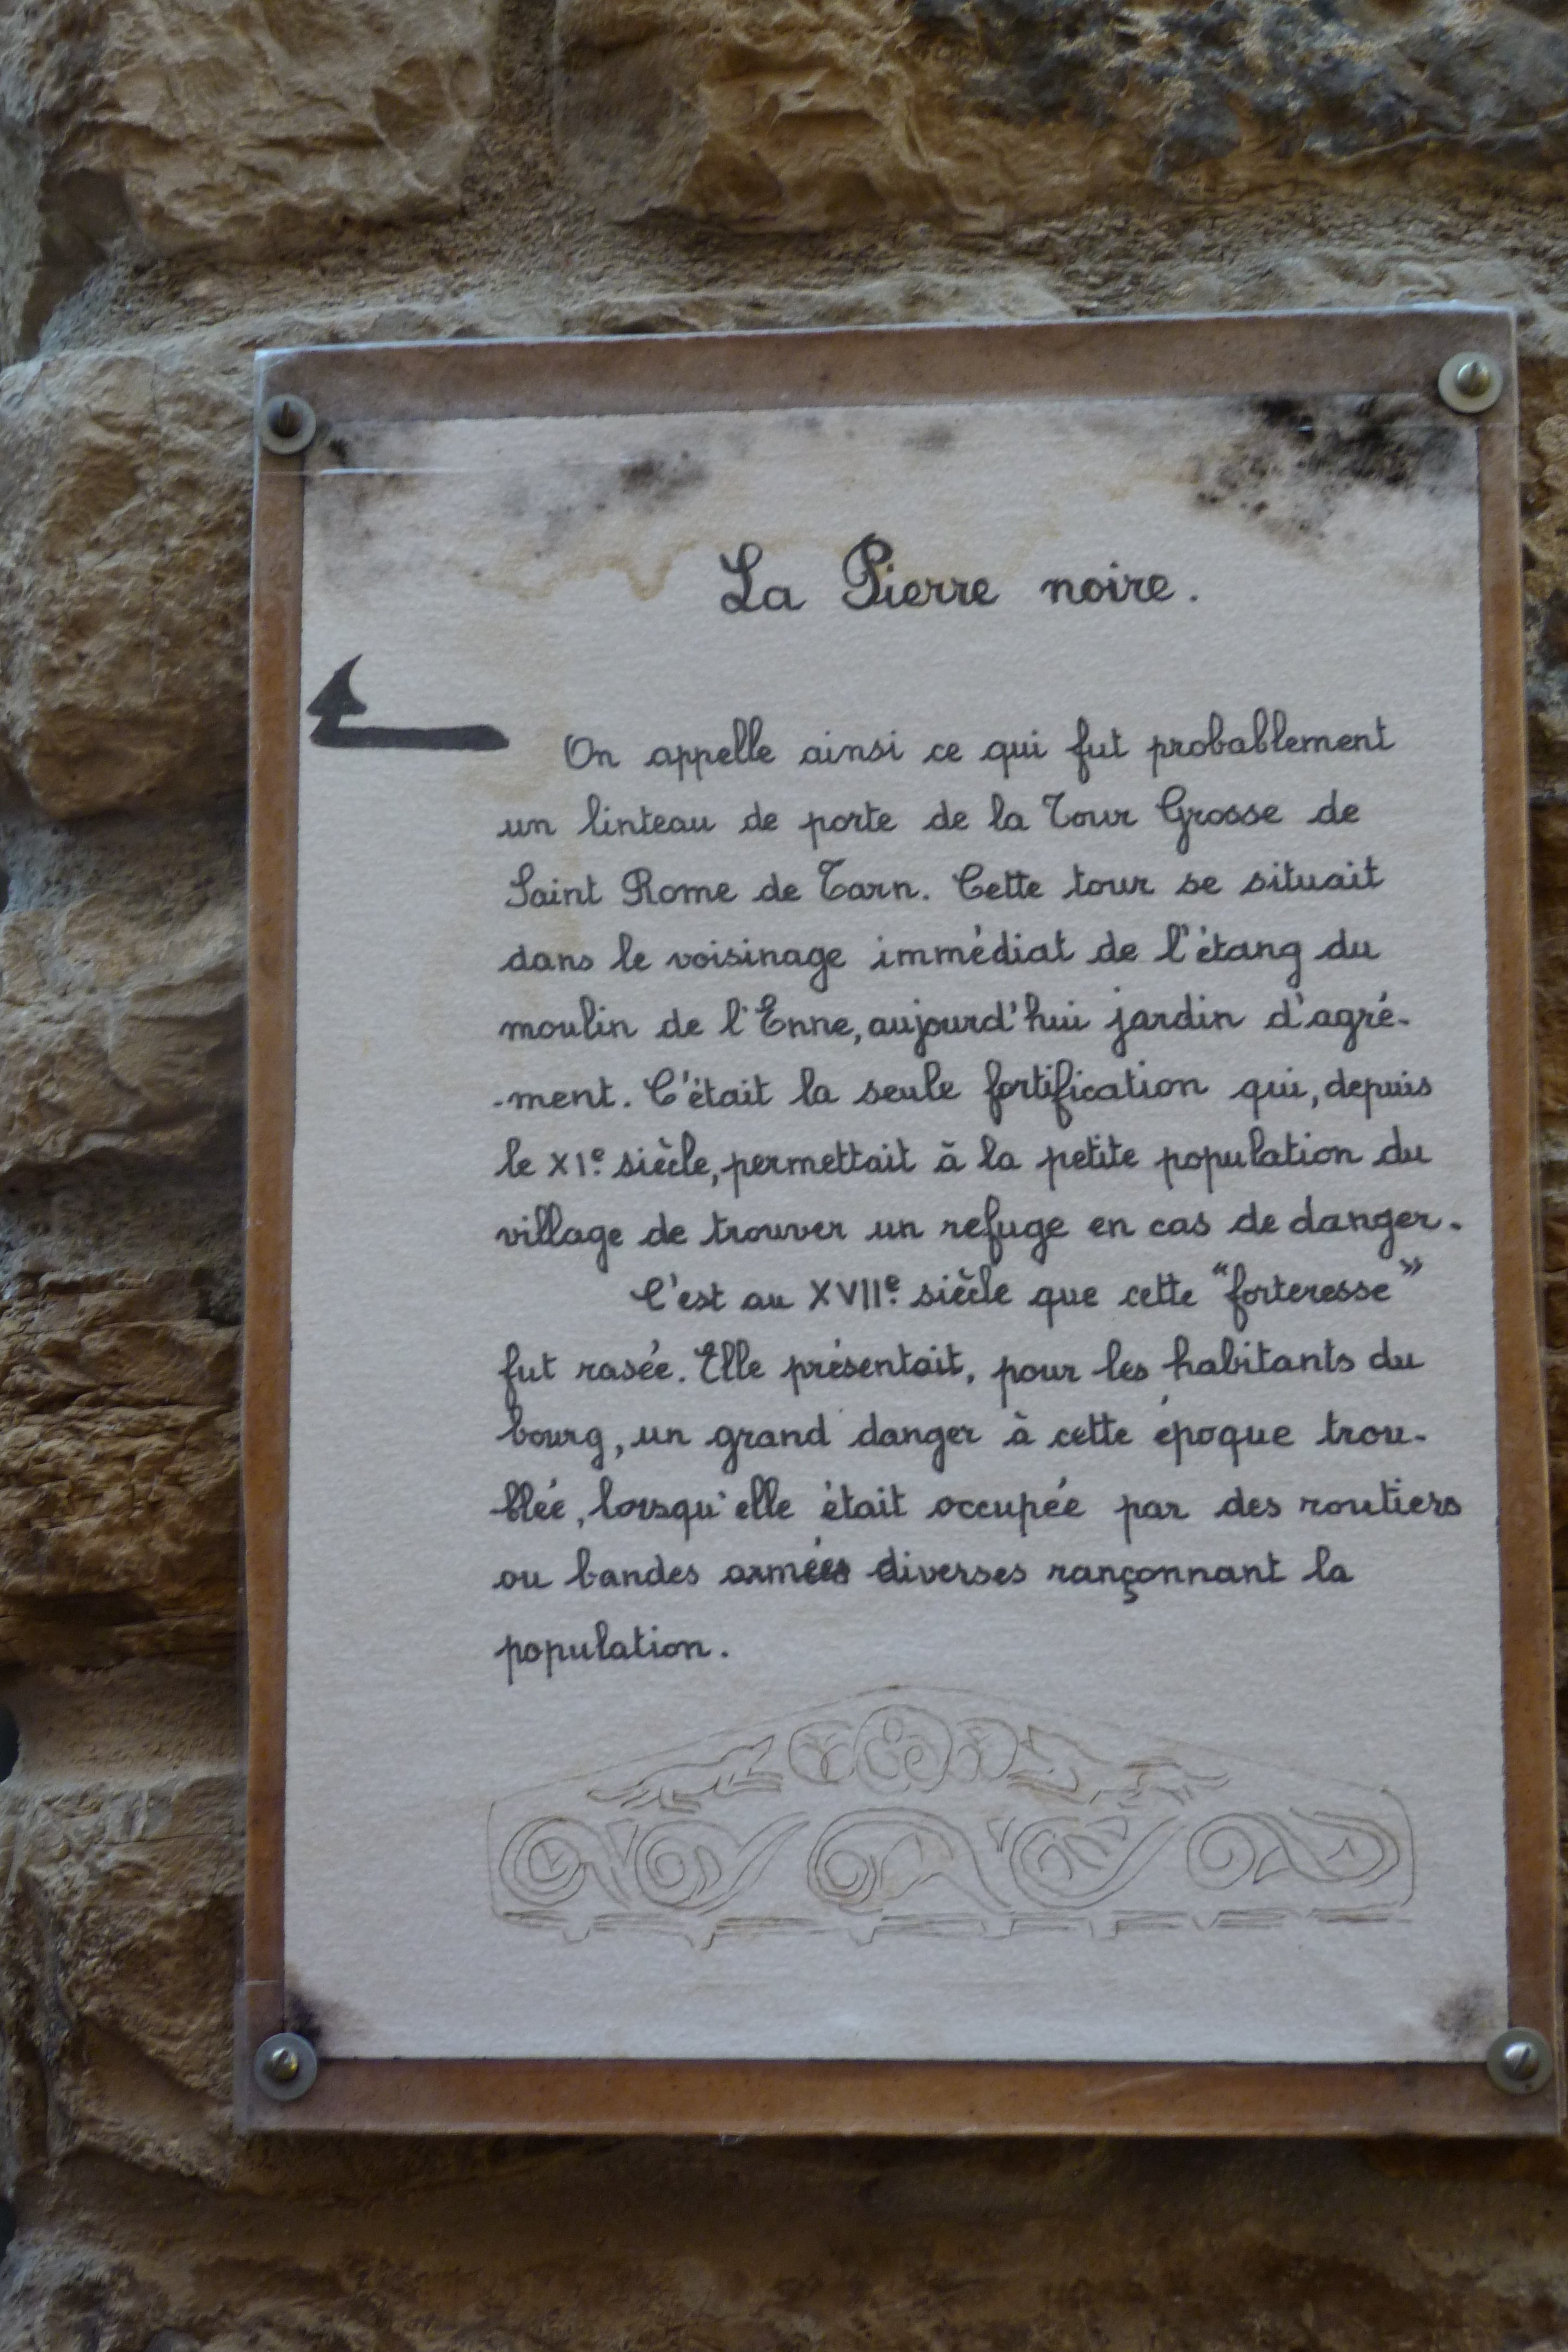 La Pierre noire.
On appelle ainsi ce qui fut probablement
un linteau de porte de la Tour Grosse de
Saint Rome de Tarn. Cette tour se situait
dans le voisinage immédiat de l'étang du
moulin de l'Enne, aujourd'hui jardin d'agré-
-ment. C'était la seule fortification qui, depuis
le XIe siècle, permettait à la petite population du
village de trouver un refuge en cas de danger.
C'est au XVIIe siècle que cette "forteresse"
fut rasée. Elle présentait, pour les habitants du
bourg, un grand danger à cette époque trou-
blée, lorsqu'elle était occupée par des routiers
ou bandes armées diverses rançonnant la
population.